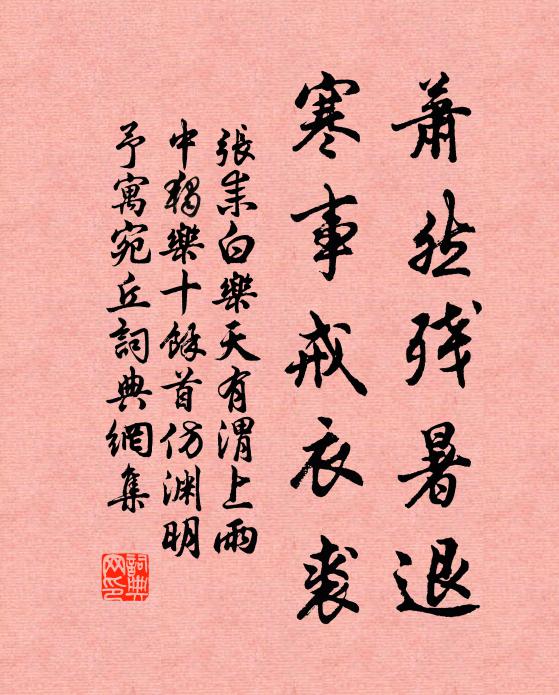 蕭然殘暑退
寒事戒衣裘
張耒白樂天有渭上雨
中獨樂十餘首仿渊明
予寓宛丘詞典網集
詞典
网印